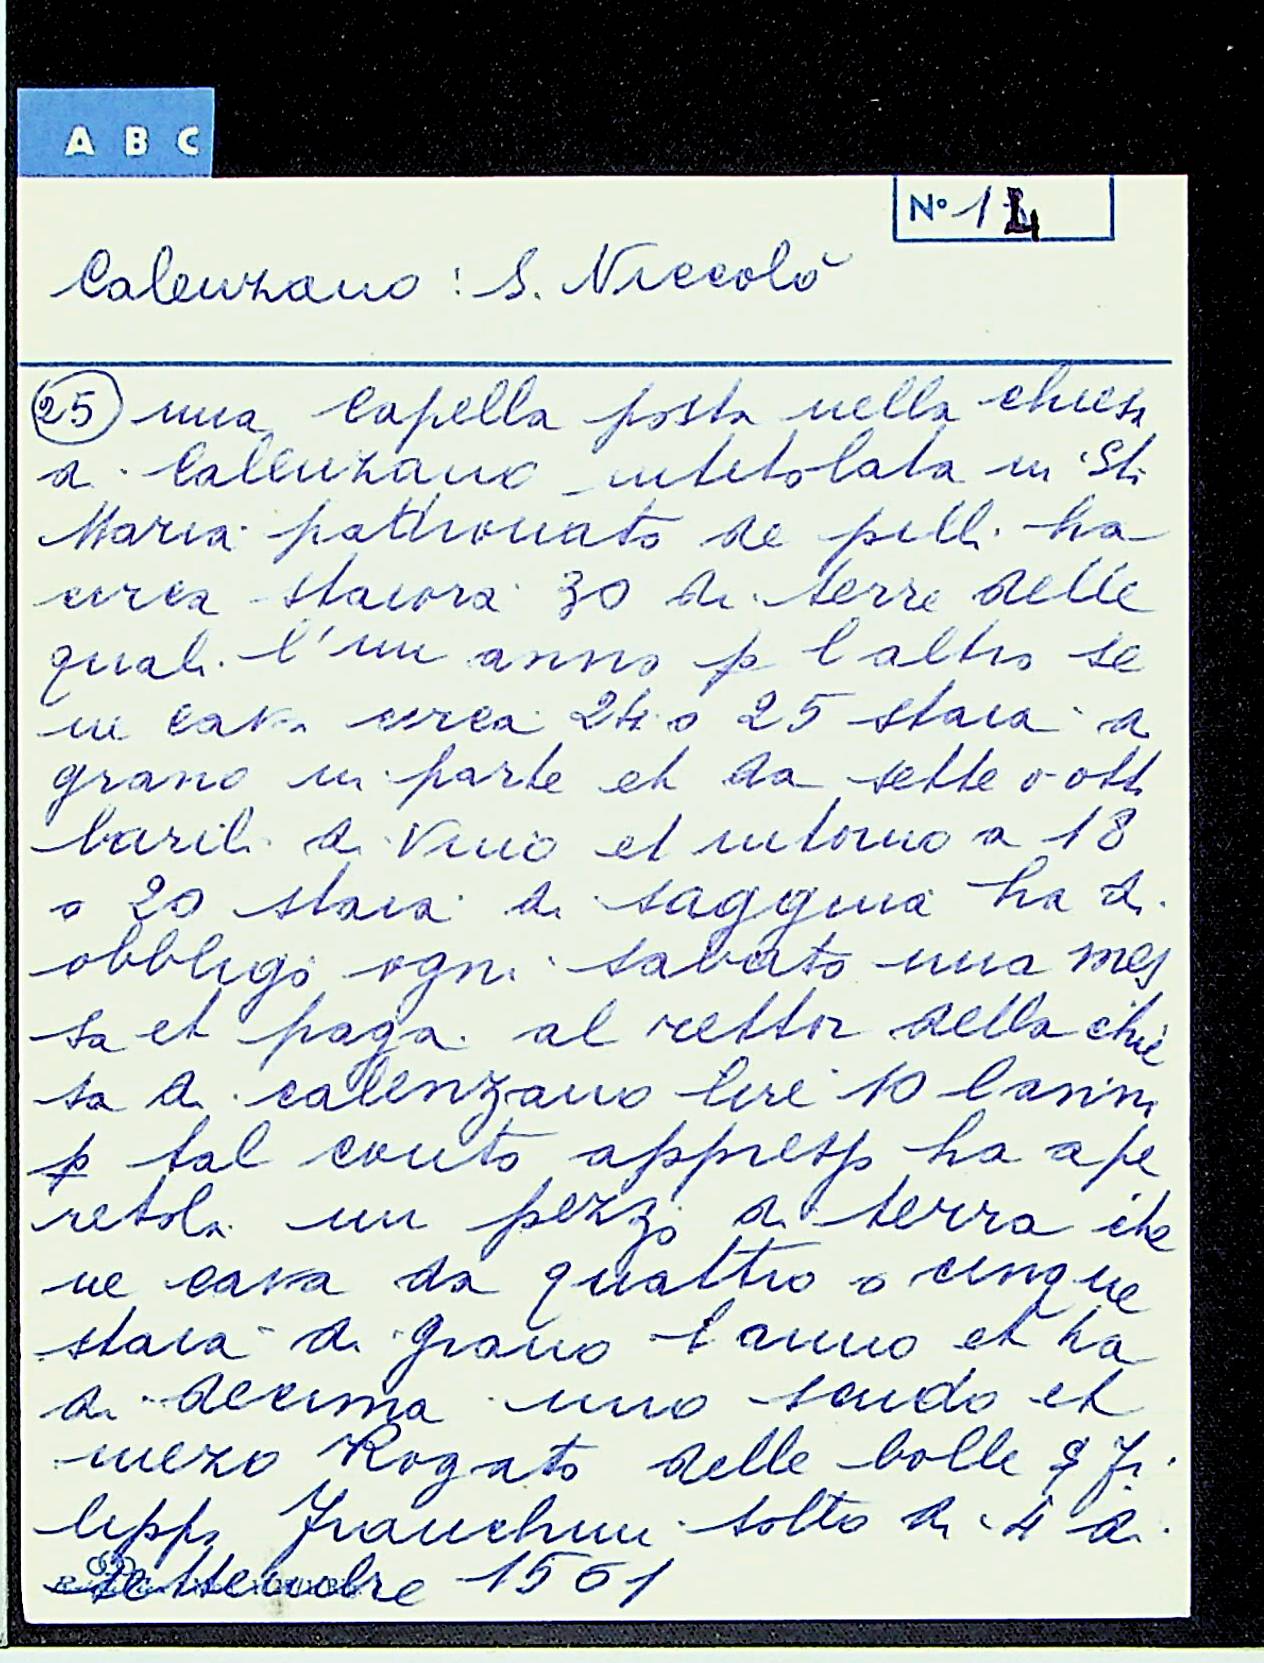 A B C
N° 14
Calenzano : S. Niccolò
25 una Capella posta nella chiesa
di Calenzano intitolata in Sta
Maria patronato de pilli ha
circa staiora 30 di terre delle
quali l'un anno p laltro se
ne cava circa 24 o 25 staia di
grano in parte et da sette o otto
barili di Vino et intorno a 18
o 20 staia di saggina ha di
obbligo ogni sabato una mes
sa et paga al rettor della chie
sa di calenzano lire 10 lanno
p tal conto appresso ha a pe
retola un pezzo di terra che
ne cava da quattro o cinque
staia di grano l anno et ha
di decima uno scudo et
mezo Rogato delle bolle Fi
lippo Franchini sotto di 4 di
settembre 1561